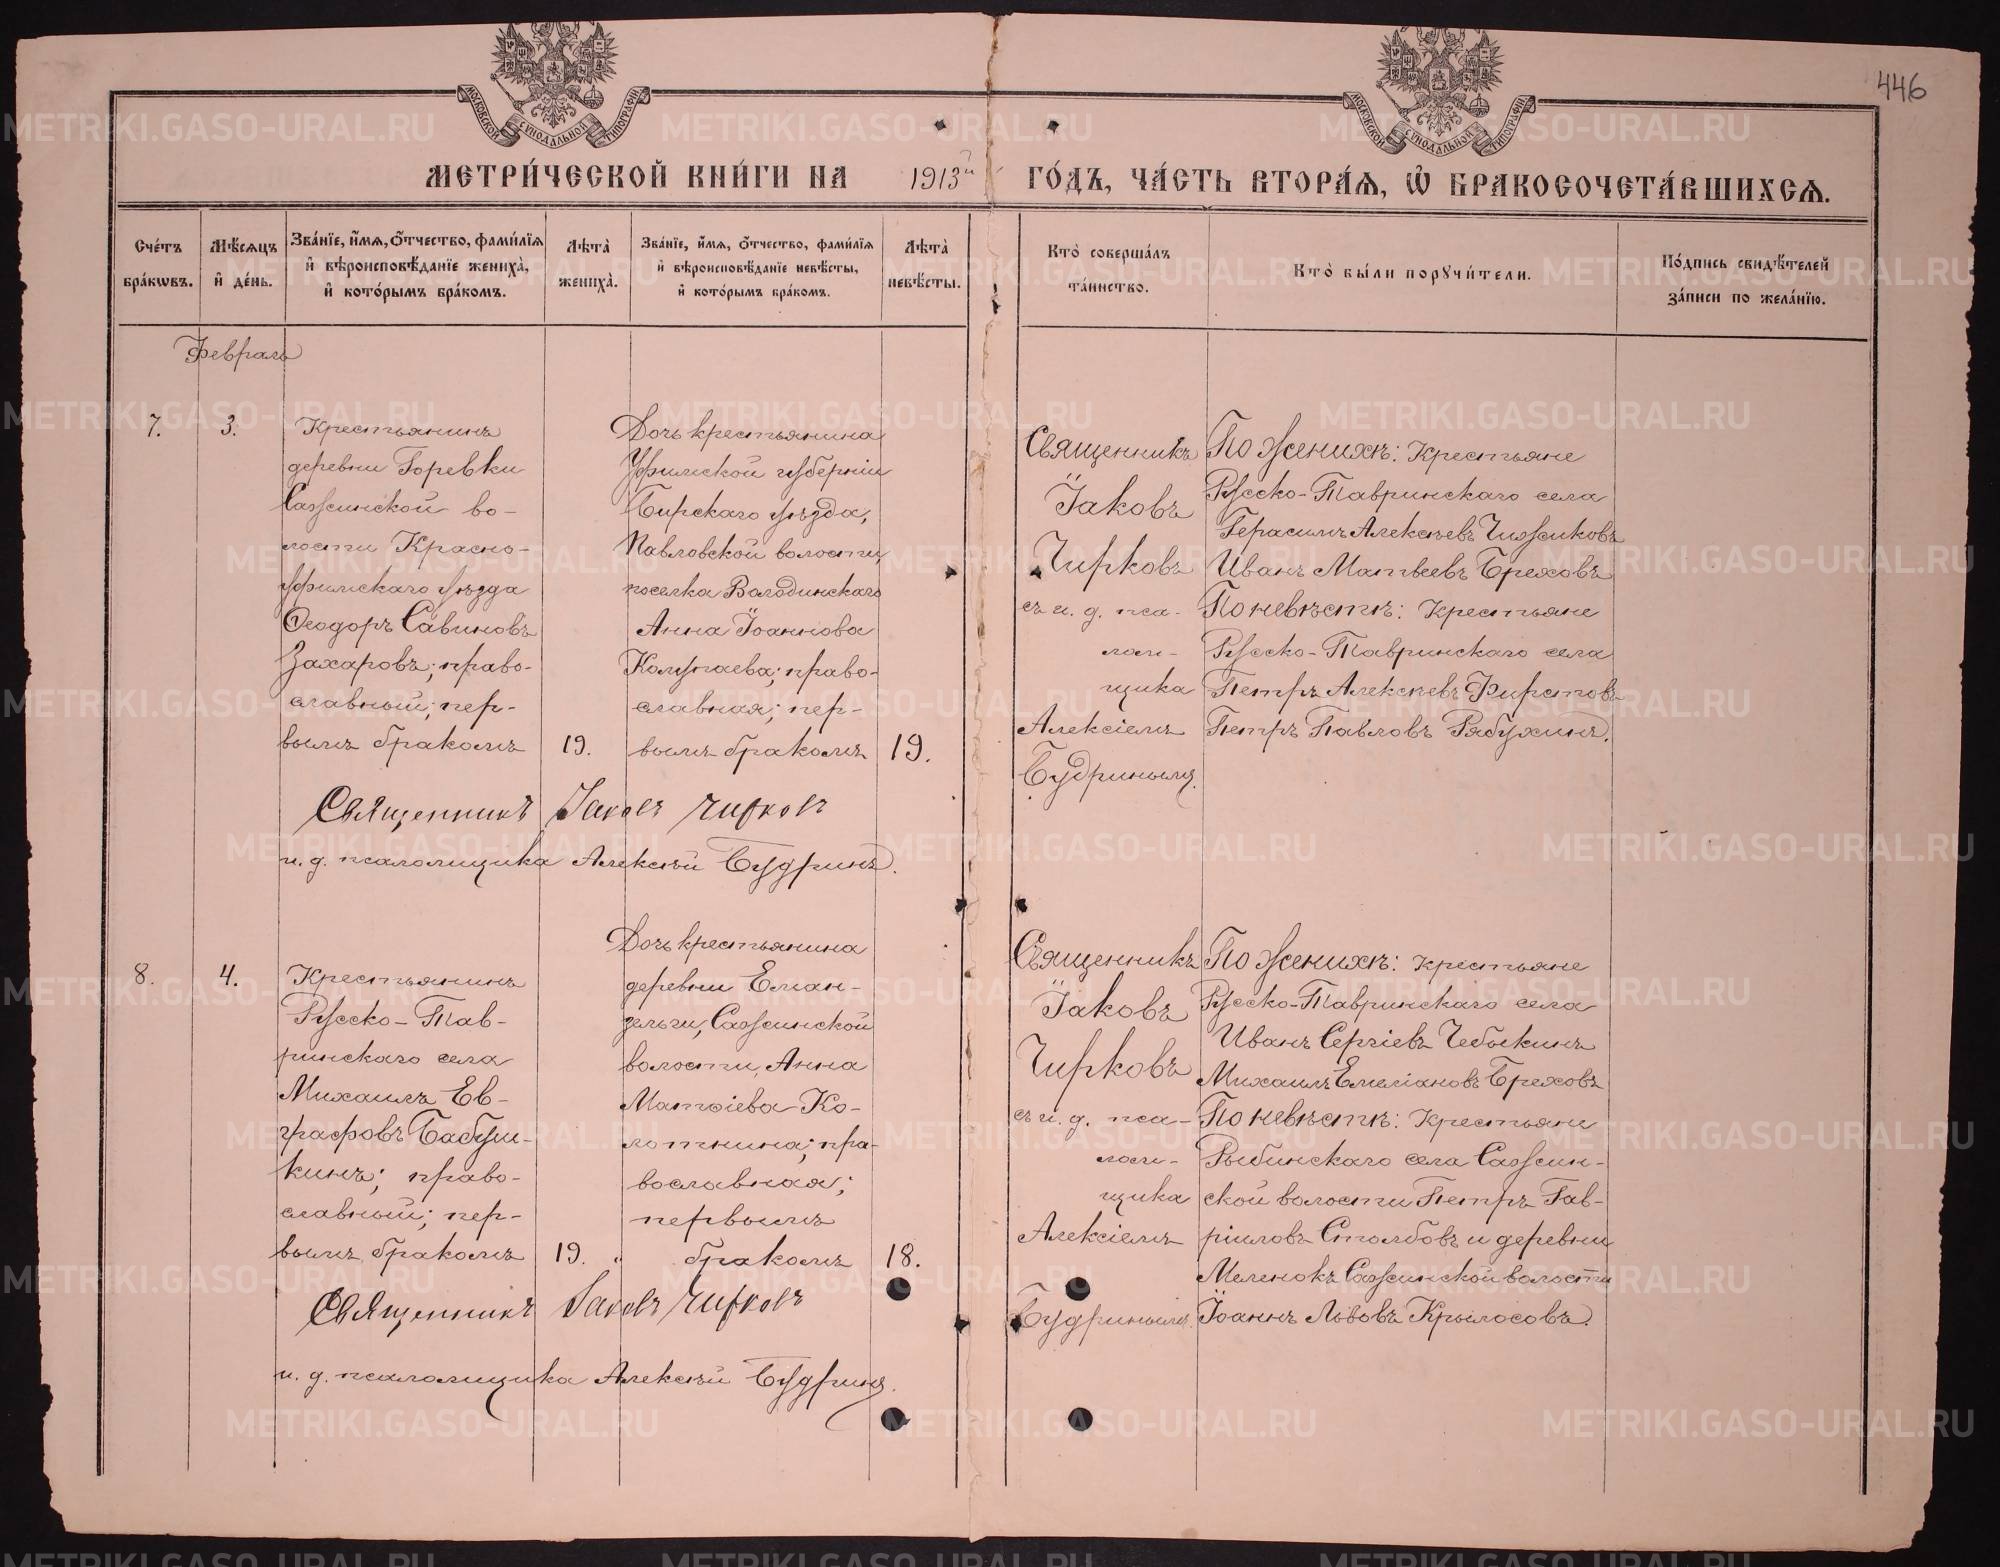 446
МОСКОВСКОЙ СѴНОДАЛЬНОЙ ТИПОГРАФІИ
МОСКОВСКОЙ СѴНОДАЛЬНОЙ ТИПОГРАФІИ
МЕТРИ́ЧЕСКОЙ КНИ́ГИ НА 1913й ГО́ДЪ, ЧА́СТЬ ВТОРА́Ѧ, Ѽ БРАКОСОЧЕТА́ВШИХСѦ.
Сче́тъ
бра́кѡвъ.
Мѣ́сѧцъ
и҆ де́нь.
Зва́нїе, и҆́мѧ, ѻ҆́тчество, фами́лїѧ
и҆ вѣроисповѣ́данїе жениха̀,
и҆ кото́рымъ бра́комъ.
Лѣта̀
жениха̀.
Зва́нїе, и҆́мѧ, ѻ҆́тчество, фами́лїѧ
и҆ вѣроисповѣ́данїе невѣ́сты,
и҆ кото́рымъ бра́комъ.
Лѣта̀
невѣ́сты.
Кто̀ соверша́лъ
та́инство.
Кто̀ бы́ли порꙋчи́тели.
По́дпись свидѣ́телей
за́писи по жела́нїю.
Февраль
7.
3.
Крестьянинъ
деревни Горевки
Сажинской во-
лости Красно-
уфимскаго уѣзда
Ѳеодоръ Савиновъ
Захаровъ; право-
славный; пер-
вымъ бракомъ
19.
Дочь крестьянина
Уфимской губерніи
Бирскаго уѣзда,
Павловской волости,
поселка Володинскаго
Анна Іоаннова
Колупаева; право-
славная; пер-
вымъ бракомъ
19.
Священникъ
Іаковъ
Чирковъ
съ и. д. пса-
лом-
щика
Алексіемъ
Будринымъ.
По женихѣ: Крестьяне
Русско-Тавринскаго села
Герасимъ Алексѣевъ Чижиковъ
Иванъ Матвѣевъ Бреховъ
По невѣстѣ: Крестьяне
Русско-Тавринскаго села
Петръ Алексѣевъ Фирстовъ
Петръ Павловъ Рябухинъ.
Священникъ Іаковъ Чирковъ
и. д. псаломщика Алексѣй Будринъ.
8.
4.
Крестьянинъ
Русско-Тав-
ринскаго села
Михаилъ Ев-
графовъ Бабуш-
кинъ; право-
славный; пер-
вымъ бракомъ
19. „
Дочь крестьянина
деревни Еман-
зельги, Сажинской
волости, Анна
Матѳіева Ко-
лотнина; пра-
вославная;
первымъ
бракомъ
18.
Священникъ
Іаковъ
Чирковъ
съ и. д. пса-
лом-
щика
Алексіемъ
Будринымъ.
По женихѣ: крестьяне
Русско-Тавринскаго села
Иванъ Сергіевъ Чебыкинъ
Михаилъ Емеліановъ Бреховъ
По невѣстѣ: Крестьяне
Рыбинскаго села Сажин-
ской волости Петръ Гав-
ріиловъ Столбовъ и деревни
Меленокъ Сажинской волости
Іоаннъ Львовъ Крылосовъ.
Священникъ Іаковъ Чирковъ
и. д. псаломщика Алексѣй Будринъ.
METRIKI.GASO-URAL.RU